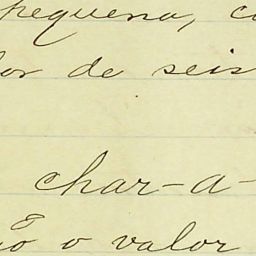 pequena, c
or de seis
char-a-
o valor